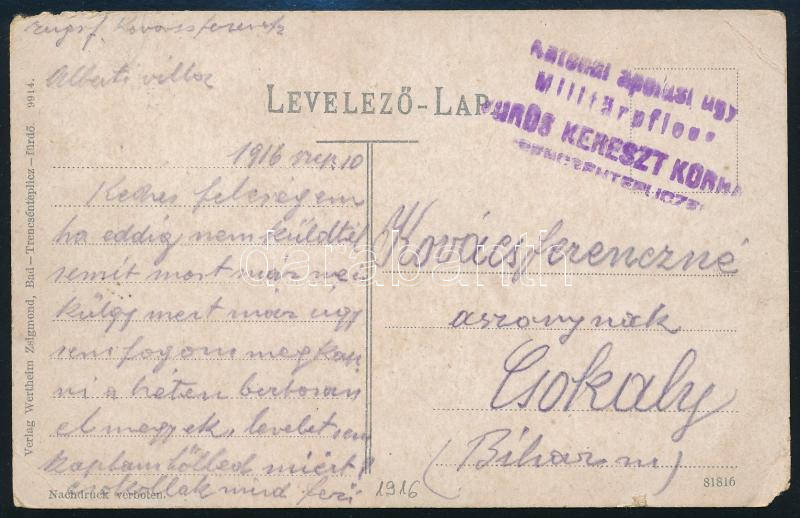 zugsf. Kovács ferencz
Alberti villa
LEVELEZŐ-LAP
Katonai ápolási ügy
Militärpflege
VÖRÖS KERESZT KÓRHÁ
TRENCSÉNTEPLICZ
1916 szep. 10
Kedves feleségem
ha eddig nem küldtél
semit most már ne
külgy mert már úgy
sem fogom megkap
ni a héten bertosan
el megyek, levelet sem
kaptam tölled miért!
csokollak mind feri
Kovács ferenczné
asszonynak
Csokaly
(Bihar m)
1916
81816
Nachdruck verboten.
Verlag Wertheim Zsigmond, Bad-Trencsénteplicz-fürdő. 9914.
darabanth